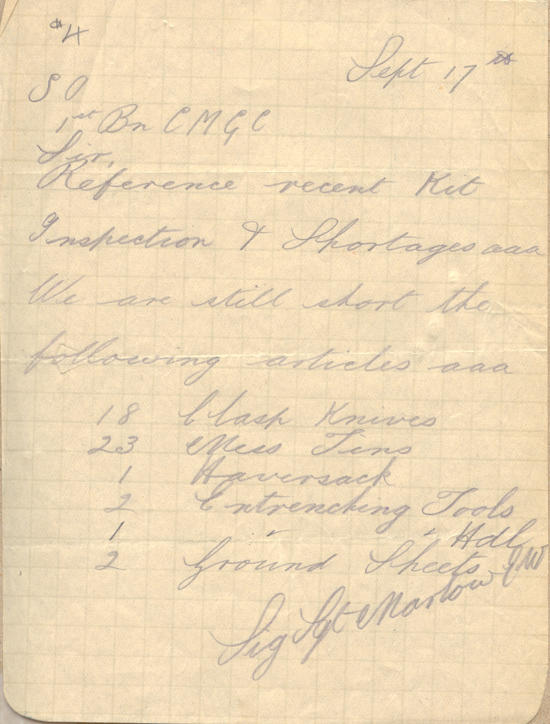 #4
Sept 17th
S O
1st Bn C M G C
Sir,
Reference recent Kit
Inspection & Shortages aaa
We are still short the
following articles aaa
18 Clasp Knives
23 Mess Tins
1 Haversack
2 Entrenching Tools
1 " " Hdl
2 Ground Sheets
Sig Sgt Marlow JW